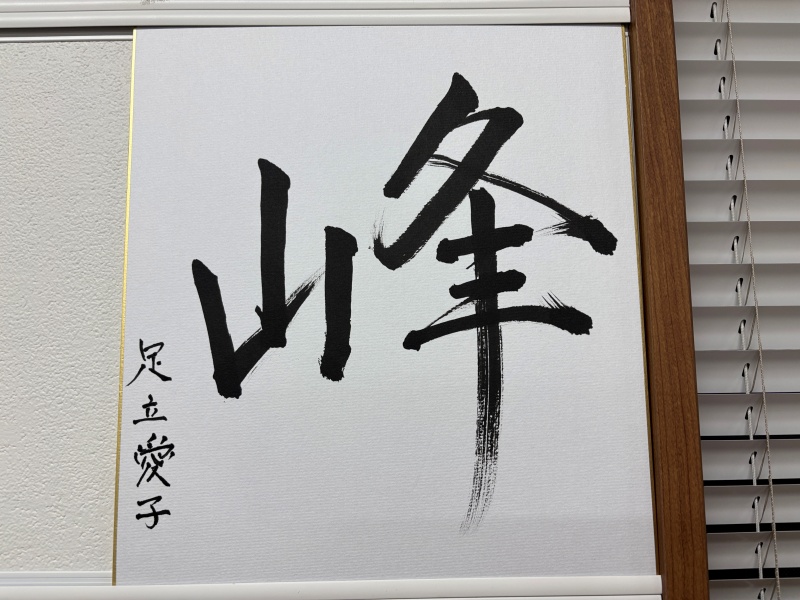 峰
足立愛子